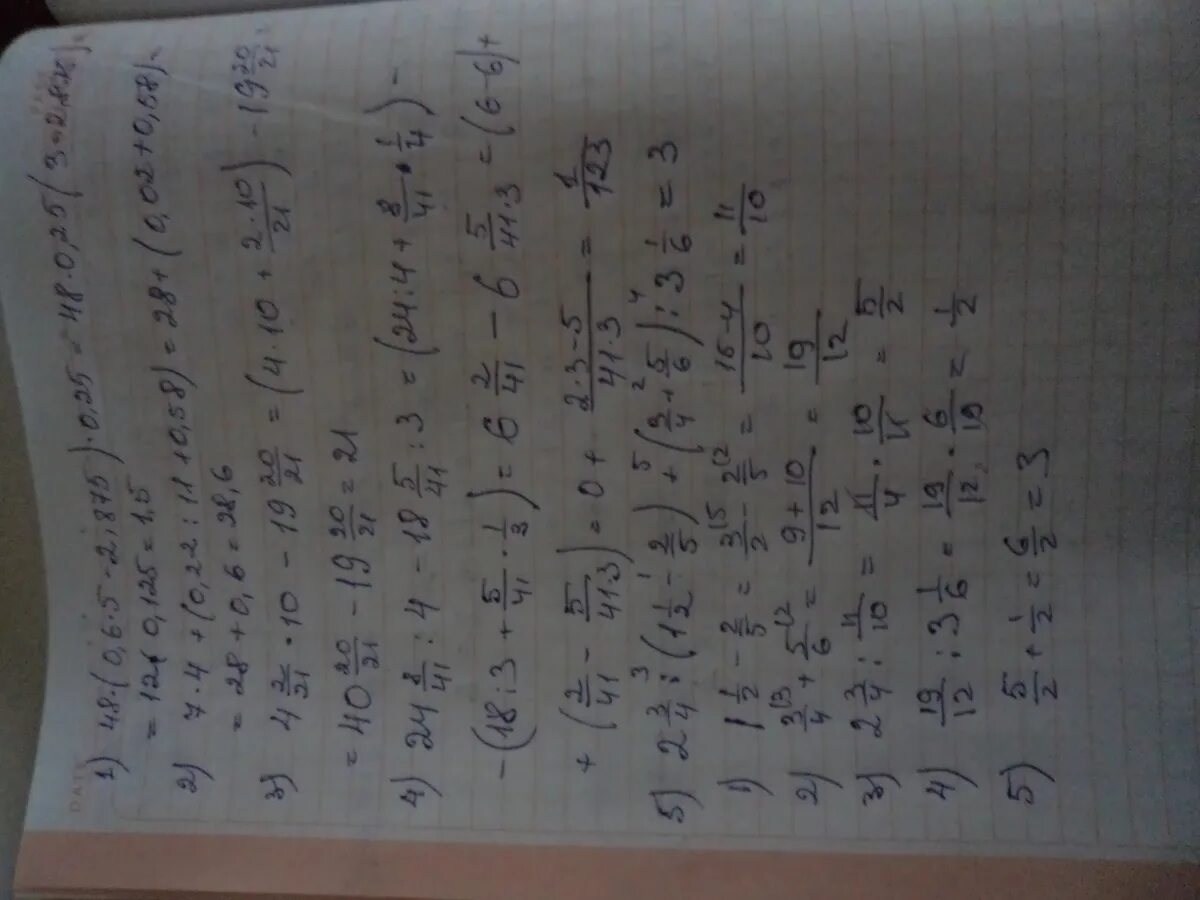 DATE
1) 48·(0,6·5-2,875)·0,25=48·0,25(3-2,875)=
=12·0,125=1,5
2) 7·4+(0,22:11+0,58)=28+(0,02+0,58)=
=28+0,6=28,6
3) 4 2/21·10-19 20/21=(4·10+2·10/21)-19 20/21=
=40 20/21-19 20/21=21
4) 24 8/41:4-18 5/41:3=(24:4+8/41·1/4)-
-(18:3+5/41·1/3)=6 2/41-6 5/41·3=(6-6)+
+(2/41-5/41·3)=0+2·3-5/41·3=1/123
5) 2 3/4:(1 1/2-2/5)+(3/4+5/6):3 1/6=3
1) 1 1/2-2/5=3/2-2/5=15-4/10=11/10
2) 3/4+5/6=9+10/12=19/12
3) 2 3/4:11/10=11/4·10/11=5/2
4) 19/12:3 1/6=19/12·6/19=1/2
5) 5/2+1/2=6/2=3